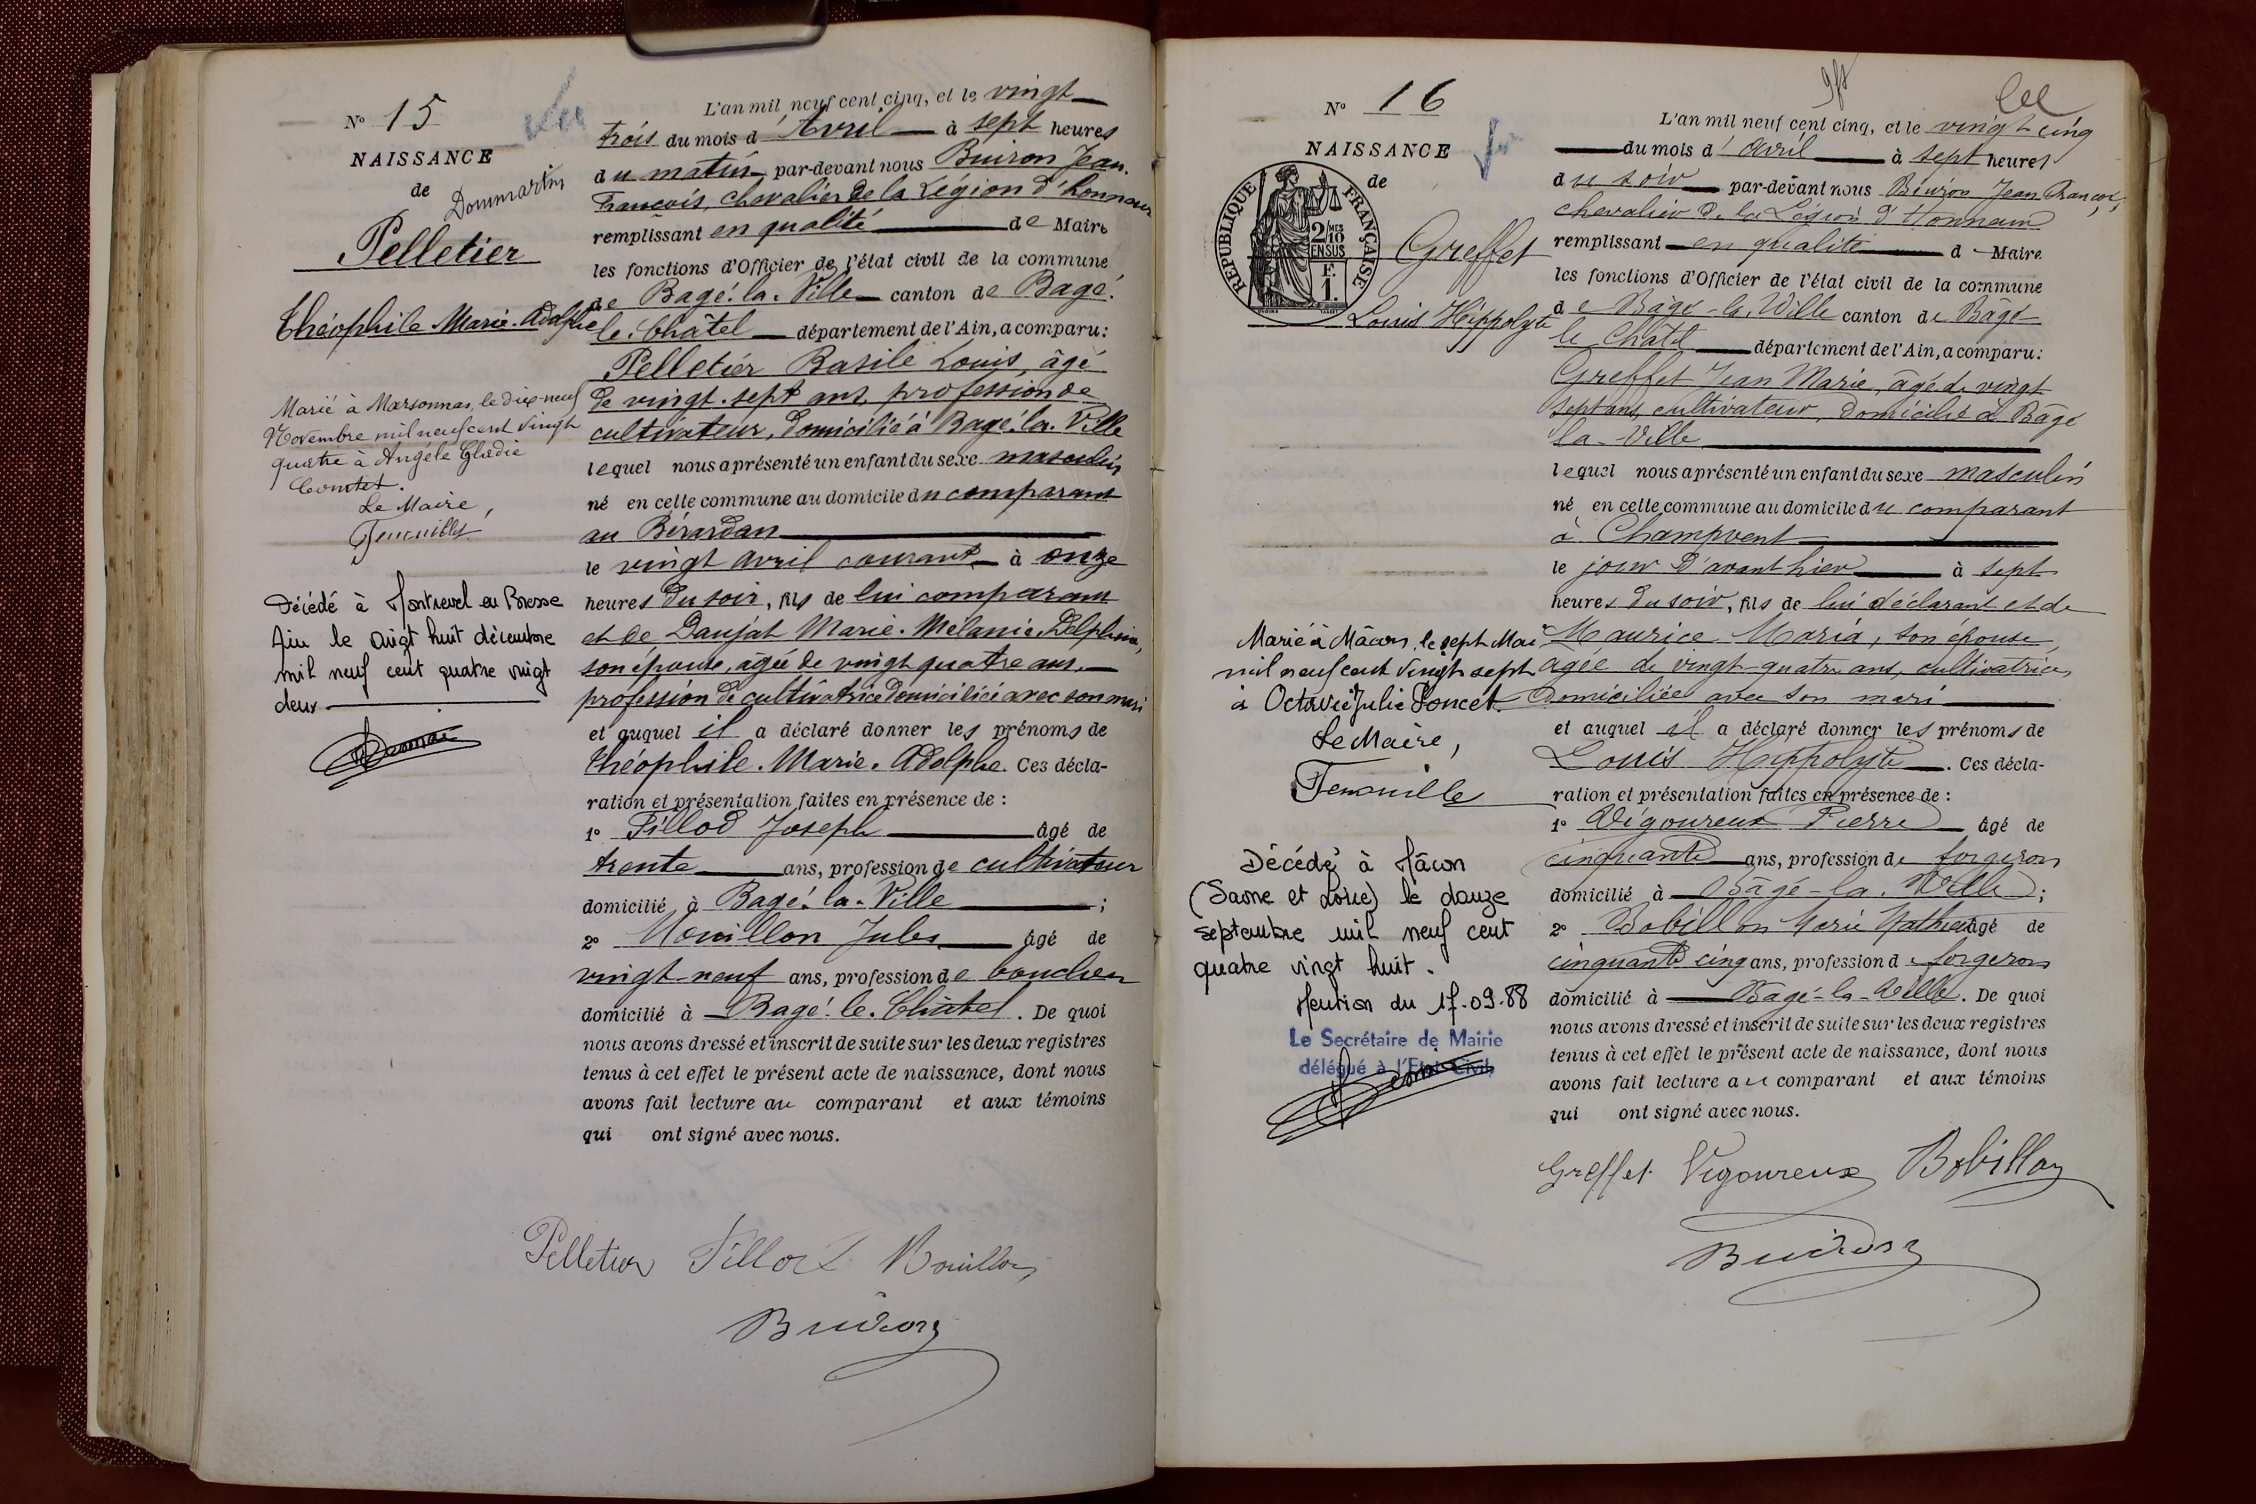 N° 15
Vu
NAISSANCE
de
Dommartin
Pelletier
Théophile Marie-Adolphe
Marié à Marsonnas, le dix-neuf
Novembre mil neuf cent vingt
quatre à Angèle Clodie
Comtet.
Le Maire,
Décédé à Montrevel en Bresse
Ain le vingt huit décembre
mil neuf cent quatre vingt
deux
L'an mil neuf cent cinq, et le vingt
trois du mois d'Avril à sept heures
du matin, par-devant nous Buiron Jean.
François, chevalier de la Légion d'honneur
remplissant en qualité de Maire
les fonctions d'Officier de l'état civil de la commune
de Bagé-la-Ville canton de Bagé-
le-Châtel département de l'Ain, a comparu:
Pelletier Basile Louis, âgé
de vingt-sept ans, profession de
cultivateur, domicilié à Bagé-la-Ville
lequel nous a présenté un enfant du sexe masculin
né en cette commune au domicile du comparant
au Bérardan
le vingt avril courant à onze
heures du soir, fils de lui comparant
et de Daujat Marie-Mélanie-Delphine,
son épouse, âgée de vingt quatre ans,
profession de cultivatrice domiciliée avec son mari
et auquel il a déclaré donner les prénoms de
Théophile-Marie-Adolphe. Ces décla-
ration et présentation faites en présence de :
1° Pillod Joseph âgé de
trente ans, profession de cultivateur
domicilié à Bagé-la-Ville ;
2° Mouillon Jules âgé de
vingt-neuf ans, profession de boucher
domicilié à Bagé-le-Châtel. De quoi
nous avons dressé et inscrit de suite sur les deux registres
tenus à cet effet le présent acte de naissance, dont nous
avons fait lecture au comparant et aux témoins
qui ont signé avec nous.
Pelletier Pillod Mouillon
Buiron
N° 16
NAISSANCE
de
RÉPUBLIQUE FRANÇAISE
2/10 MES
EN SUS
F.
1.
Greffet
Louis Hippolyte
Marié à Mâcon, le sept Mai
mil neuf cent vingt sept
à Octavie Julie Poncet.
Le Maire,
Décédé à Mâcon
(Saône et Loire) le douze
septembre mil neuf cent
quatre vingt huit.
Mention du 17-09-88
Le Secrétaire de Mairie
délégué à l'Etat Civil,
L'an mil neuf cent cinq, et le vingt cinq
du mois d'avril à sept heures
du soir par-devant nous Buiron Jean François,
chevalier de la Légion d'Honneur
remplissant en qualité d Maire
les fonctions d'Officier de l'état civil de la commune
de Bâgé-la-Ville canton de Bâgé
le Châtel département de l'Ain, a comparu:
Greffet Jean Marie, âgé de vingt
sept ans, cultivateur, domicilié à Bâgé
la-Ville
lequel nous a présenté un enfant du sexe masculin
né en cette commune au domicile du comparant
à Champvent
le jour d'avant hier à sept
heures du soir, fils de lui déclarant et de
Maurice Maria, son épouse,
agée de vingt-quatre ans, cultivatrice,
domiciliée avec son mari
et auquel il a déclaré donner les prénoms de
Louis Hippolyte. Ces décla-
ration et présentation faites en présence de :
1° Vigoureux Pierre âgé de
cinquante ans, profession de forgeron
domicilié à Bâgé-la-Ville ;
2° Bobillon Marie Mathieu âgé de
cinquante cinq ans, profession de forgeron
domicilié à Bâgé-la-Ville. De quoi
nous avons dressé et inscrit de suite sur les deux registres
tenus à cet effet le présent acte de naissance, dont nous
avons fait lecture au comparant et aux témoins
qui ont signé avec nous.
Greffet Vigoureux Bobillon
Buiron